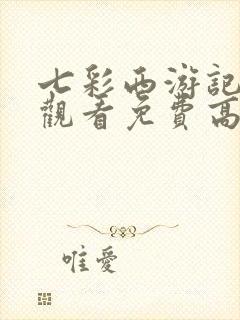 七彩西游記
觀看免費高
唯愛